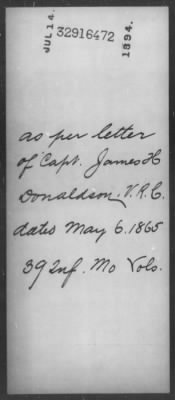 JUL 14. 32916472 1894.
as per letter
of Capt. James H
Donaldson, V.R.C.
dated May 6. 1865
39 Inf. Mo Vols.